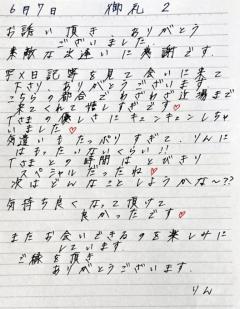 6月7日 御礼 2
お誘い頂き ありがとう
ございました
素敵な出逢いに感謝です.
写メ日記等を見て会いに来て
下さり、ありがとうございます
こちらの都合で 近辺まで
来てくれて嬉しすぎです♡
Tさまの優しさにキュンキュンしちゃ
いました♡
気遣いもたっぷりすぎて、りんに
はもったいないくらい!!
Tさまとの時間はとびきり
スペシャルだったね♡
次はどんなことしようかな〜??
気持ち良くなって頂けて
良かったです♡
またお会いできるのを楽しみに
しています
ご縁を頂き
ありがとうございます.
りん